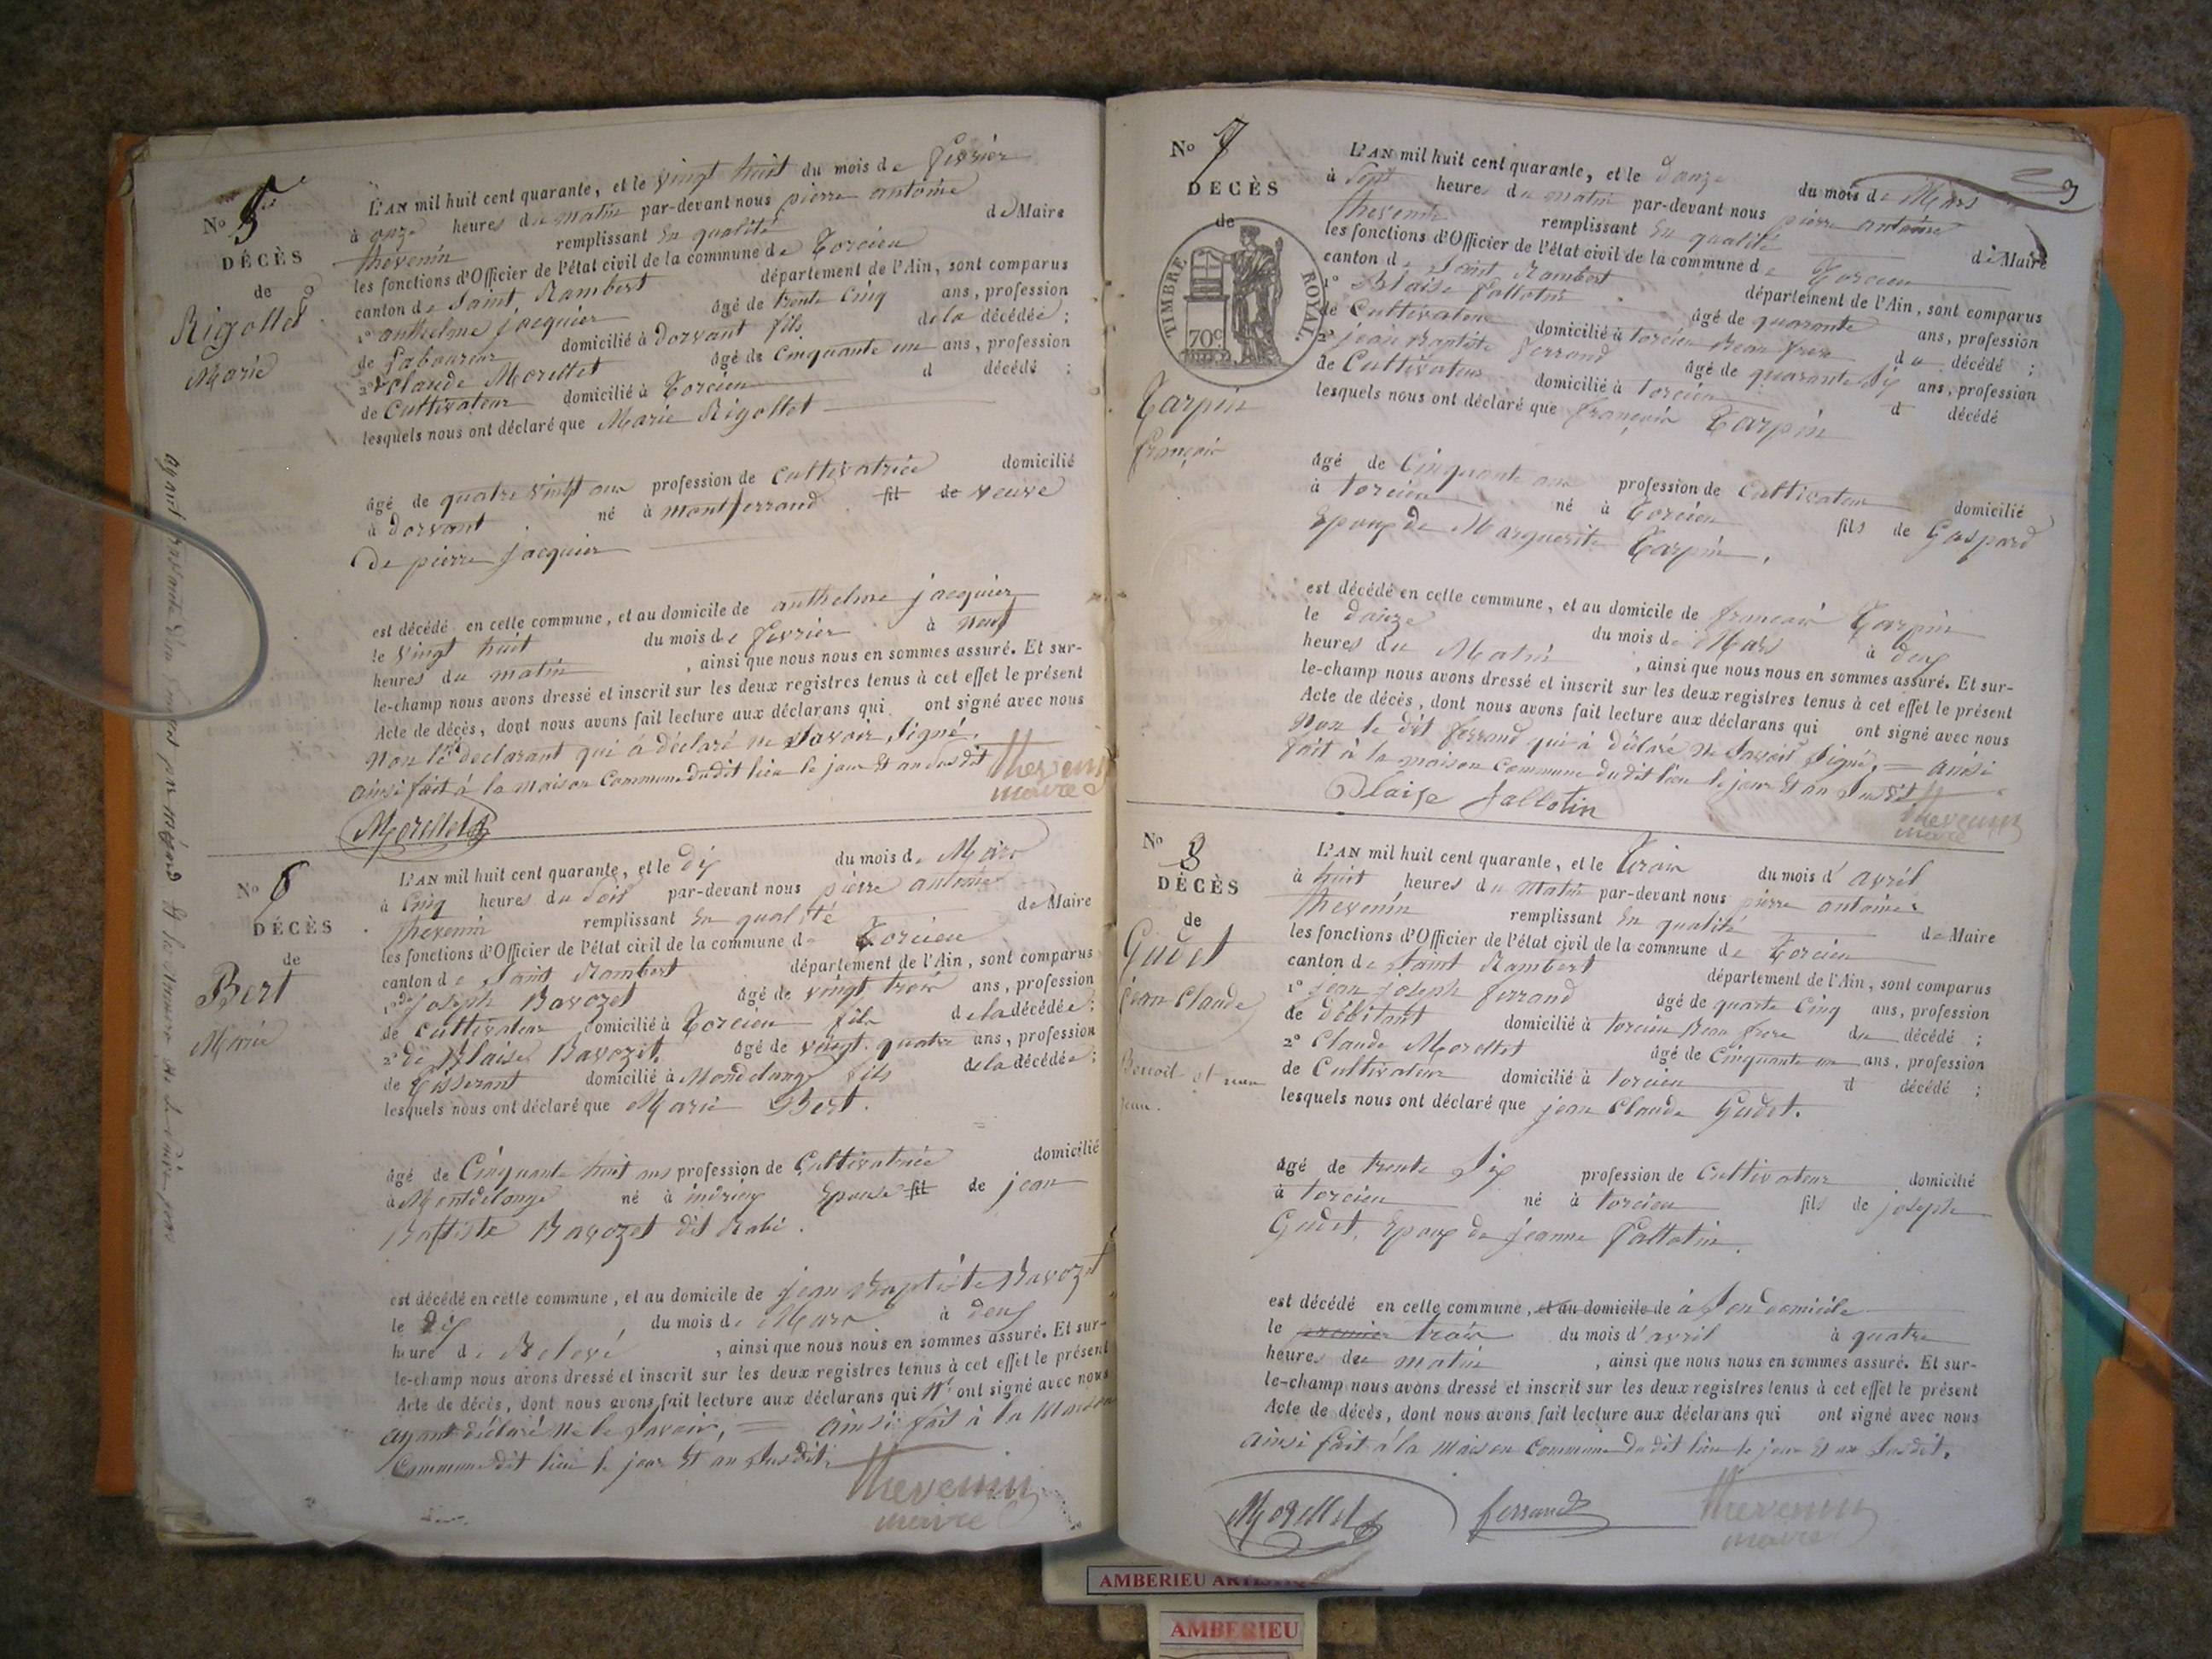 No 5
DÉCÈS
de
Rigottet
Marie
L'AN mil huit cent quarante, et le vingt huit du mois de fevrier
à onze heures du matin par-devant nous pierre antoine
thevenin remplissant en qualité de Maire
les fonctions d'Officier de l'état civil de la commune de Torcieu
canton de Saint Rambert département de l'Ain, sont comparus
1° anthelme jacquier âgé de trente cinq ans, profession
de Laboureur domicilié à dorvant fils de la décédée ;
2° Claude Morettet âgé de cinquante un ans, profession
de Cultivateur domicilié à Torcieu d décédé ;
lesquels nous ont déclaré que Marie Rigottet
âgé de quatre vingt ans profession de cultivatrice domicilié
à dorvant né à montferrand fil de veuve
De pierre jacquier
est décédé en cette commune, et au domicile de anthelme jacquier
le vingt huit du mois de fevrier à neuf
heures du matin , ainsi que nous nous en sommes assuré. Et sur-
le-champ nous avons dressé et inscrit sur les deux registres tenus à cet effet le présent
Acte de décès, dont nous avons fait lecture aux déclarans qui ont signé avec nous
Non le declarant qui à déclaré ne Savoir Signé.
ainsi fait à la maison Commune dudit lieu le jour et an susdit
thevenin
maire
Morettet
No 6
DÉCÈS
de
Bert
Marie
L'AN mil huit cent quarante, et le dix du mois de Mars
à Cinq heures du Soir par-devant nous pierre antoine
thevenin remplissant en qualité de Maire
les fonctions d'Officier de l'état civil de la commune d Torcieu
canton de Saint Rambert département de l'Ain, sont comparus
1° Joseph Bavozet âgé de vingt trois ans, profession
de cultivateur domicilié à Torcieu fils de la décédée ;
2° Blaise Bavozet, âgé de vingt quatre ans, profession
de Tisserant domicilié à Mondelange fils de la décédée ;
lesquels nous ont déclaré que Marie Bert.
âgé de Cinquante huit ans profession de Cultivatrice domicilié
à Montdelange né à indrieux Epouse fil de jean
Batiste Bavozet dit Rabi.
est décédé en cette commune, et au domicile de jean Baptiste Bavozet
le dix du mois de Mars à deux
heure de Relevé , ainsi que nous nous en sommes assuré. Et sur-
le-champ nous avons dressé et inscrit sur les deux registres tenus à cet effet le présent
Acte de décès, dont nous avons fait lecture aux déclarans qui n' ont signé avec nous
ayant déclaré ne le Savoir, = ainsi fait à la Maison
Commune dit lieu le jour et an susdit.
thevenin
maire
No 7
DÉCÈS
de
TIMBRE ROYAL.
70c
Tarpin
françois
L'AN mil huit cent quarante, et le douze du mois de Mars
à Sept heures du matin par-devant nous pierre antoine
thevenin remplissant en qualité de Maire
les fonctions d'Officier de l'état civil de la commune de Torcieu
canton de Saint Rambert département de l'Ain, sont comparus
1° Blaise fallotin âgé de quarante ans, profession
de Cultivateur domicilié à torcieu Beau frere du décédé ;
2° jean Baptiste ferrand âgé de quarante Six ans, profession
de Cultivateur domicilié à torcieu d décédé
lesquels nous ont déclaré que françois Tarpin
âgé de Cinquante ans profession de Cultivateur domicilié
à torcieu né à Torcieu fils de Gaspard
Epoux de Marguerite Tarpin.
est décédé en cette commune, et au domicile de françois Tarpin
le douze du mois de Mars à deux
heures du Matin , ainsi que nous nous en sommes assuré. Et sur-
le-champ nous avons dressé et inscrit sur les deux registres tenus à cet effet le présent
Acte de décès, dont nous avons fait lecture aux déclarans qui ont signé avec nous
Non le dit ferrand qui à déclaré ne Savoir Signé. = ainsi
fait à la maison commune dudit lieu le jour et an Susdit.
Blaise fallotin
thevenin
maire
No 8
DÉCÈS
de
Gudet
jean Claude
L'AN mil huit cent quarante, et le Trois du mois d'avril
à huit heures du matin par-devant nous pierre antoine
thevenin remplissant en qualité de Maire
les fonctions d'Officier de l'état civil de la commune de Torcieu
canton de Saint Rambert département de l'Ain, sont comparus
1° jean joseph ferrand âgé de quarte Cinq ans, profession
de débitant domicilié à torcieu Beau frere du décédé ;
2° Claude Morettet âgé de Cinquante un ans, profession
de Cultivateur domicilié à torcieu d décédé ;
lesquels nous ont déclaré que jean Claude Gudet.
âgé de trente Six profession de Cultivateur domicilié
à torcieu né à torcieu fils de joseph
Gudet, Epoux de jeanne fallotin.
est décédé en cette commune, et au domicile de à Son domicile
le premier trois du mois d'avril à quatre
heures du matin , ainsi que nous nous en sommes assuré. Et sur-
le-champ nous avons dressé et inscrit sur les deux registres tenus à cet effet le présent
Acte de décès, dont nous avons fait lecture aux déclarans qui ont signé avec nous
ainsi fait à la maison Commune du dit lieu le jour et an susdit.
Morettet ferrand thevenin
maire
AMBERIEU
AMBERIEU